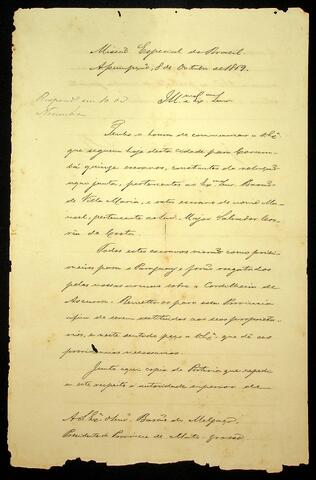 Missão Especial do Brasil
Assumpção, 8 de Outubro de 1869.
Respond. em 10 de
Novembro
Illmo e Exmo Snr.
Tenho a honra de communicar a V. Exª
que seguem hoje desta cidade para Corum-
bá quinze escravos, constantes da relação
aqui junta, pertencentes ao Exmo Snr. Barão
de Villa Maria, e outro escravo de nome Ma-
noel, pertencente ao Snr. Major Salvador Cor-
rêa da Costa.
Todos estes escravos vierão como prisi-
oneiros para o Paraguay e forão resgatados
pelas nossas armas sobre a Cordilheira de
Ascurra. Remetto-os para essa Provincia
afim de serem restituidos aos seus proprieta-
rios, e neste sentido peço a V. Exª que dê as
providencias necessarias.
Junto aqui copia da Portaria que expedi
a este respeito a autoridade superior de
A S. Exª o Snr. Barão de Melgaço
Presidente da Provincia de Mato-Grosso